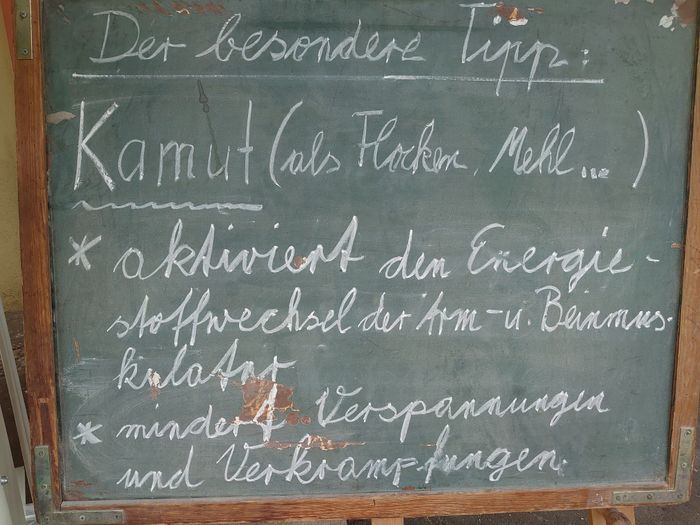 Der besondere Tipp:
Kamut (als Flocken, Mehl... )
* aktiviert den Energie-
stoffwechsel der Arm- u. Beinmus-
kulatur
* mindert Verspannungen
und Verkrampfungen.